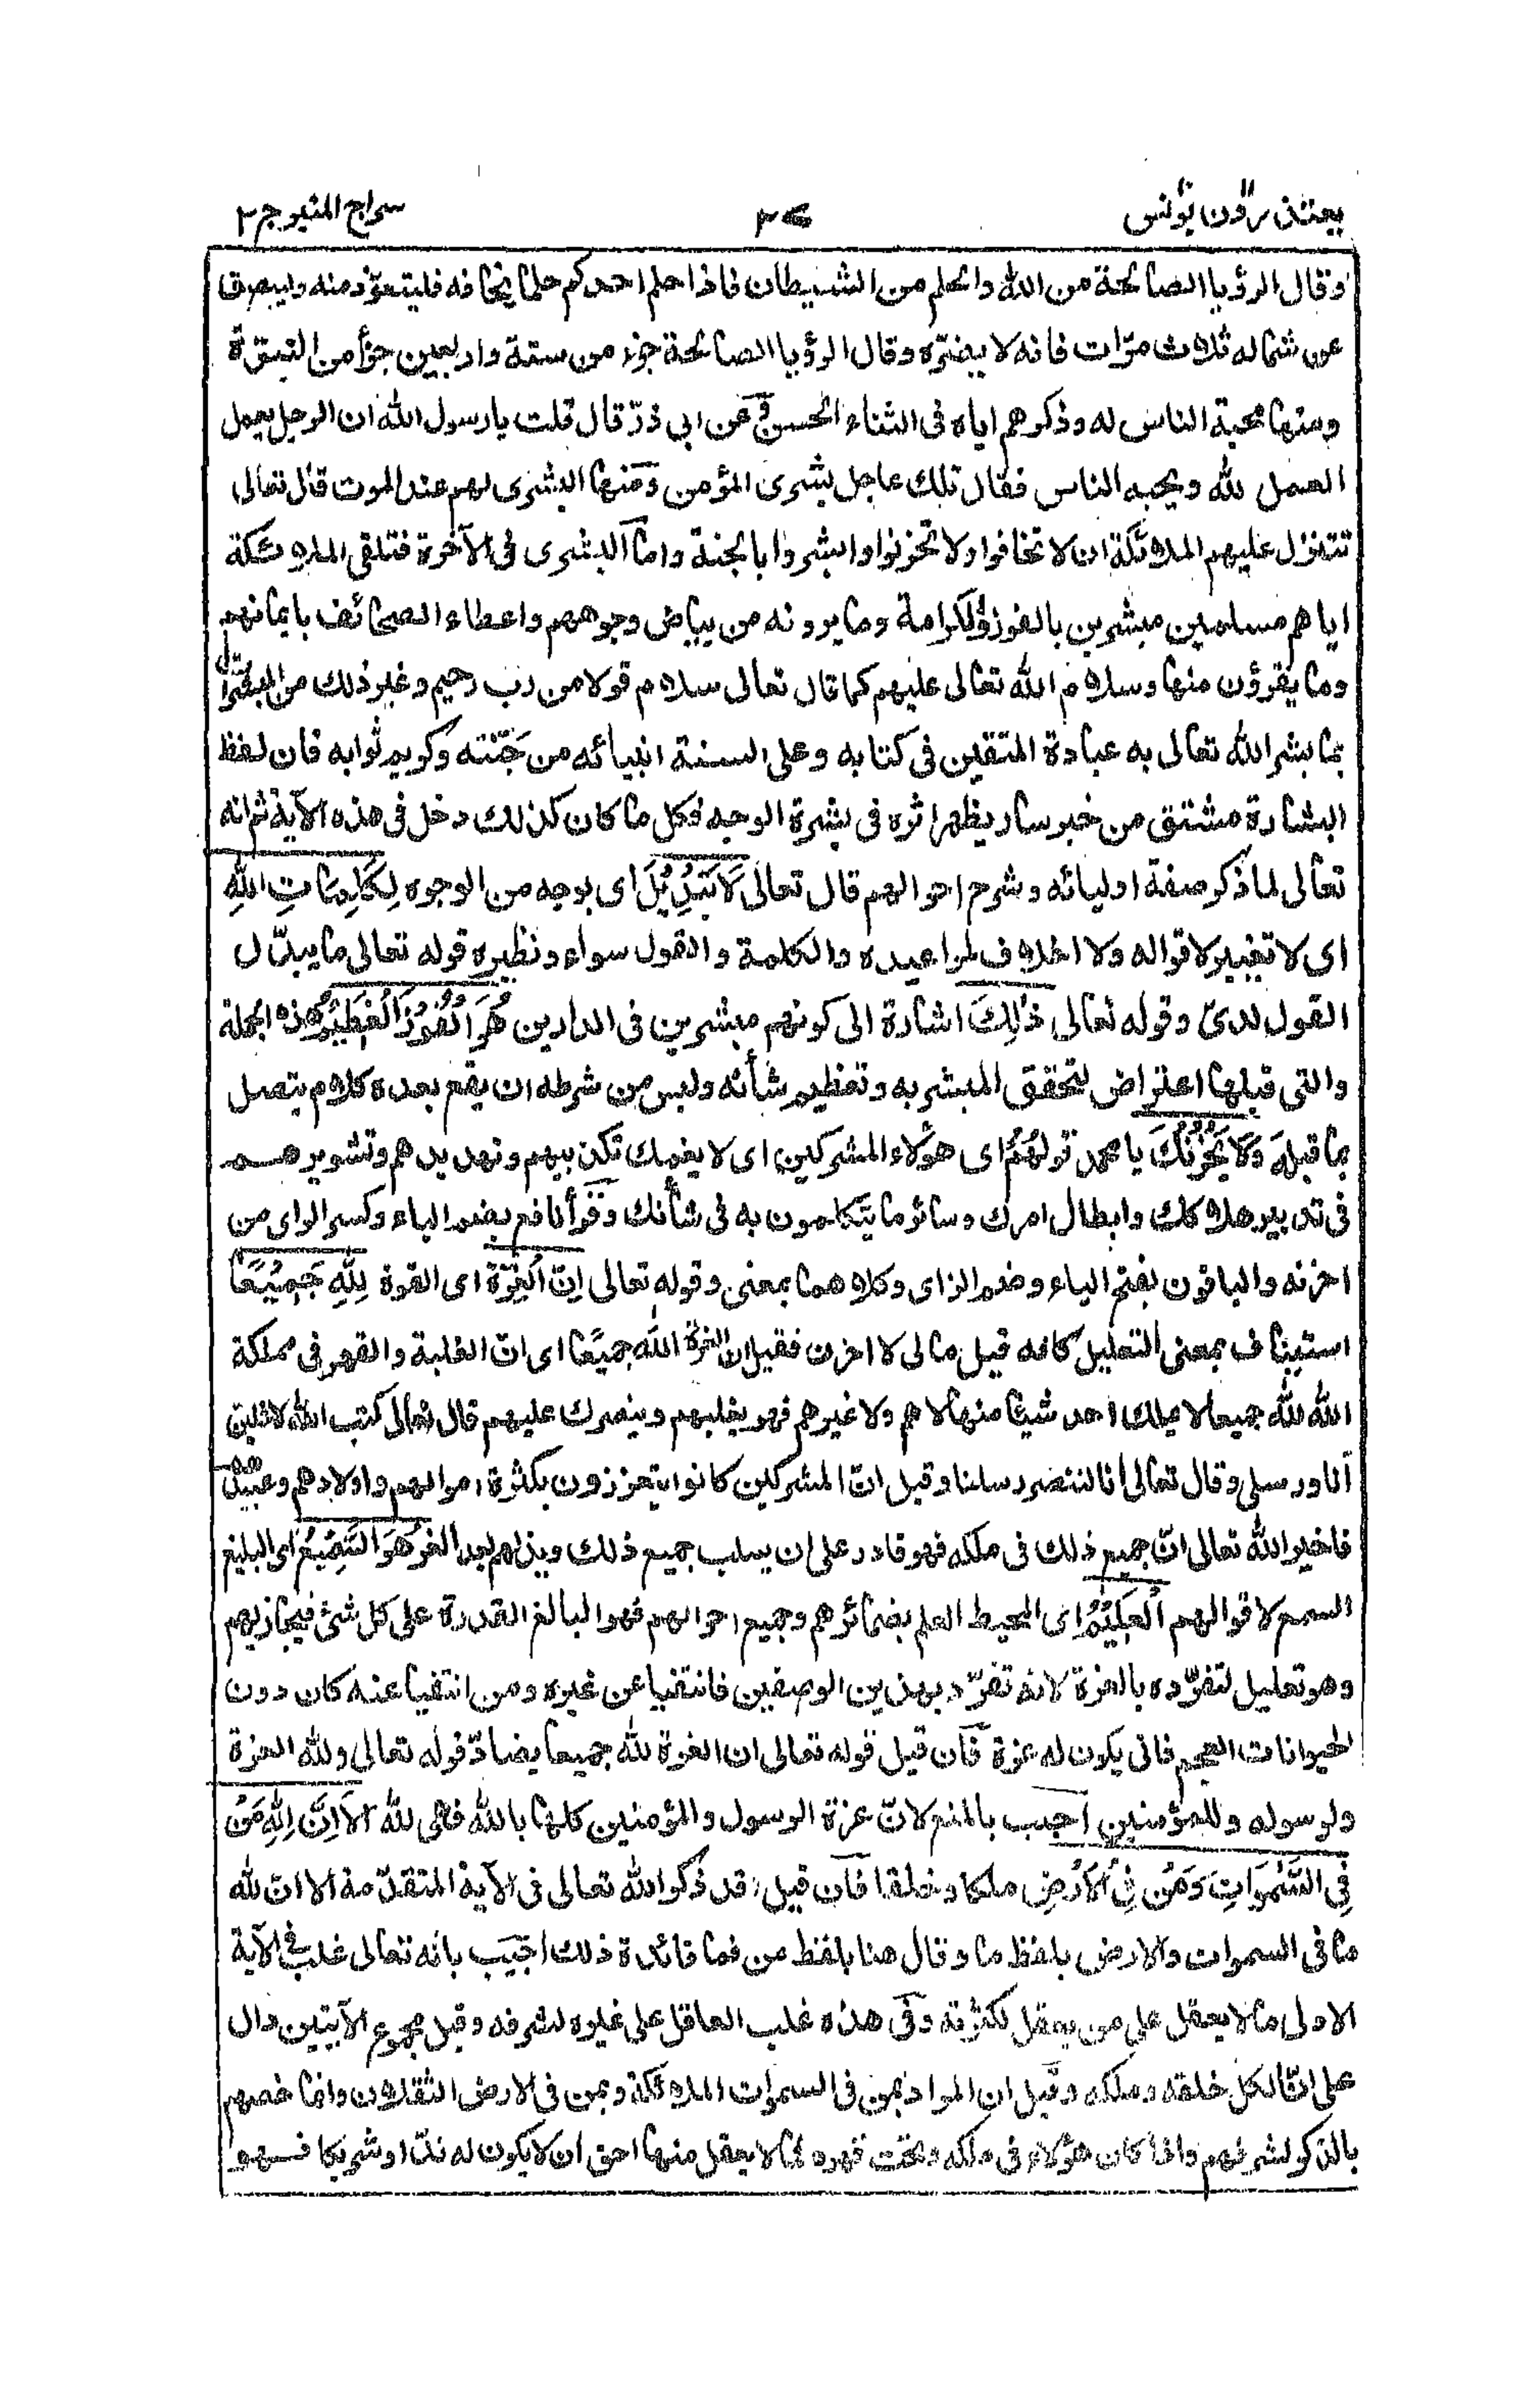 يعتذرون يونس
٣٤
سراج المنير ج ٢
وقال الرؤيا الصالحة من الله والحلم من الشيطان فاذا حلم احدكم حلما يخافه فليتعوّذ منه وليبصق
عن شماله ثلاث مرّات فانه لا يضرّه وقال الرؤيا الصالحة جزء من ستة واربعين جزأ من النبوّة
ومنها محبة الناس له وذكرهم اياه فى الثناء الحسن فعن ابى ذرّ قال قلت يا رسول الله ان الرجل يعمل
العمل لله ويحبه الناس فقال تلك عاجل بشرى المؤمن ومنها البشرى لهم عند الموت قال تعالى
تتنزل عليهم الملائكة ان لا تخافوا ولا تحزنوا وابشروا بالجنة واما البشرى فى الآخرة فتلقى الملائكة
اياهم مسلمين مبشرين بالفوز والكرامة وما يرونه من بياض وجوههم واعطاء الصحائف بايمانهم
وما يقرؤن منها وسلام الله تعالى عليهم كما قال تعالى سلام قولا من رب رحيم وغير ذلك من المبشرات
بما بشر الله تعالى به عبادة المتقين فى كتابه وعلى السنة انبيائه من جَنّته وكريم ثوابه فان لفظ
البشارة مشتق من خبر سار يظهر اثره فى بشرة الوجه فكل ما كان كذلك دخل فى هذه الآية ثم انه
تعالى لما ذكر صفة اوليائه وشرح احوالهم قال تعالى لَا تَبْدِيْلَ اى بوجه من الوجوه لِكَلِمَاتِ اللهِ
اى لا تغيير لاقواله ولا اخلاف لمواعيده والكلمة والقول سواء ونظيره قوله تعالى ما يبدّل
القول لدىّ وقوله تعالى ذٰلِكَ اشارة الى كونهم مبشرين فى الدارين هُوَ الْفَوْزُ الْعَظِيْمُ هذه الجملة
والتى قبلها اعتراض لتحقق المبشر به وتعظيم شأنه وليس من شرطه ان يقع بعده كلام يتصل
بما قبله وَلَا يَحْزُنْكَ يا محمد قولُهُمْ اى هؤلاء المشركين اى لا يغمك تكذيبهم وتهديدهم وتشويرهم
فى تدبير هلاكك وابطال امرك وسائر ما يتكلمون به فى شأنك وقرأ نافع بضم الياء وكسر الزاى من
احزنه والباقون بفتح الياء وضم الزاى وكلاهما بمعنى وقوله تعالى اِنّ الْعِزّةَ اى القوة لِلّٰهِ جَمِيْعًا
استيناف بمعنى التعليل كانه قيل ما لى لا احزن فقيل ان العزة لله جميعا اى انّ الغلبة والقهر فى مملكة
الله لله جميعا لا يملك احد شيئا منها لا هم ولا غيرهم فهو يغلبهم وينصرك عليهم قال تعالى كتب الله لاغلبن
انا ورسلى وقال تعالى انا لننصر رسلنا وقيل انّ المشركين كانوا يتعززون بكثرة اموالهم واولادهم وعبيدهم
فاخبر الله تعالى انّ جميع ذلك فى ملكه فهو قادر على ان يسلب جميع ذلك ويذلهم بعد العز هُوَ السَّمِيْعُ اى البليغ
السمع لاقوالهم الْعَلِيْمُ اى المحيط العلم بضمائرهم وجميع احوالهم فهو البالغ القدرة على كل شئ فيجازيهم
وهو تعليل لتفرّده بالعزة لانه تفرّد بهذين الوصفين فانتفيا عن غيره ومن انتفيا عنه كان دون
الحيوانات العجم فانى يكون له عزة فان قيل قوله تعالى ان العزة لله جميعا يضادّ قوله تعالى ولله العزة
ولرسوله وللمؤمنين اجيب بالمنع لانّ عزة الرسول والمؤمنين كلها بالله فهى لله اَلَا اِنَّ لِلّٰهِ مَنْ
فِى السَّمٰوَاتِ وَمَنْ فِى الْاَرْضِ ملكا وخلقا فان قيل قد ذكر الله تعالى فى الآية المتقدّمة الا انّ لله
ما فى السموات والارض بلفظ ما وقال هنا بلفظ من فما فائدة ذلك اجيب بانه تعالى غلب فى الآية
الاولى ما لا يعقل على من يعقل لكثرته وفى هذه غلب العاقل على غيره لشرفه وقيل مجموع الآيتين دال
على انّ الكل خلقه وملكه وقيل ان المراد بمن فى السموات الملائكة وبمن فى الارض الثقلان وانما خصهم
بالذكر لشرفهم واذا كان هؤلاء فى ملكه وتحت قهره فما لا يعقل منها احق ان لا يكون له ندّا وشريكا فهو